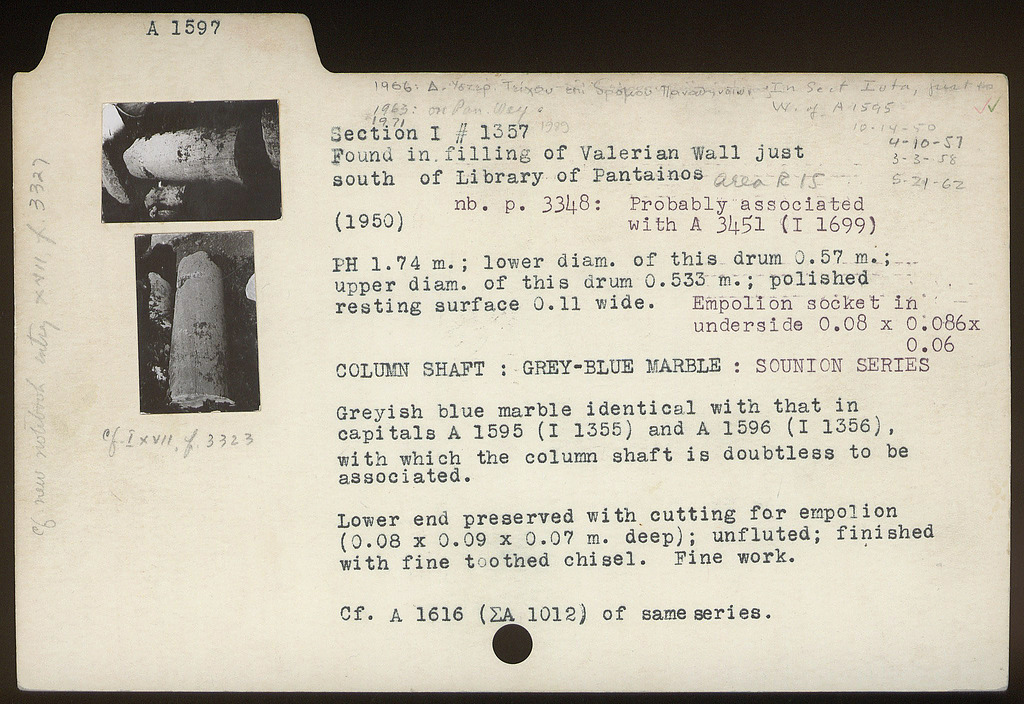 A 1597
1966: Δ. Υστερ. Τείχου επί δρόμου Παναθηναίων
In Sect Iota, just to
W. of A 1595
1963: on Pan. Way.
1971
1989
10-14-50
4-10-57
3-3-58
5-21-62
Section I # 1357
Found in filling of Valerian Wall just
south of Library of Pantainos area R 15
nb. p. 3348: Probably associated
(1950) with A 3451 (I 1699)
PH 1.74 m.; lower diam. of this drum 0.57 m.;
upper diam. of this drum 0.533 m.; polished
resting surface 0.11 wide. Empolion socket in
underside 0.08 x 0.086x
0.06
COLUMN SHAFT : GREY-BLUE MARBLE : SOUNION SERIES
Greyish blue marble identical with that in
capitals A 1595 (I 1355) and A 1596 (I 1356),
with which the column shaft is doubtless to be
associated.
Lower end preserved with cutting for empolion
(0.08 x 0.09 x 0.07 m. deep); unfluted; finished
with fine toothed chisel. Fine work.
Cf. A 1616 (ΣA 1012) of same series.
cf. I XVII, p. 3323
cf new notebook entry XVII, p. 3327